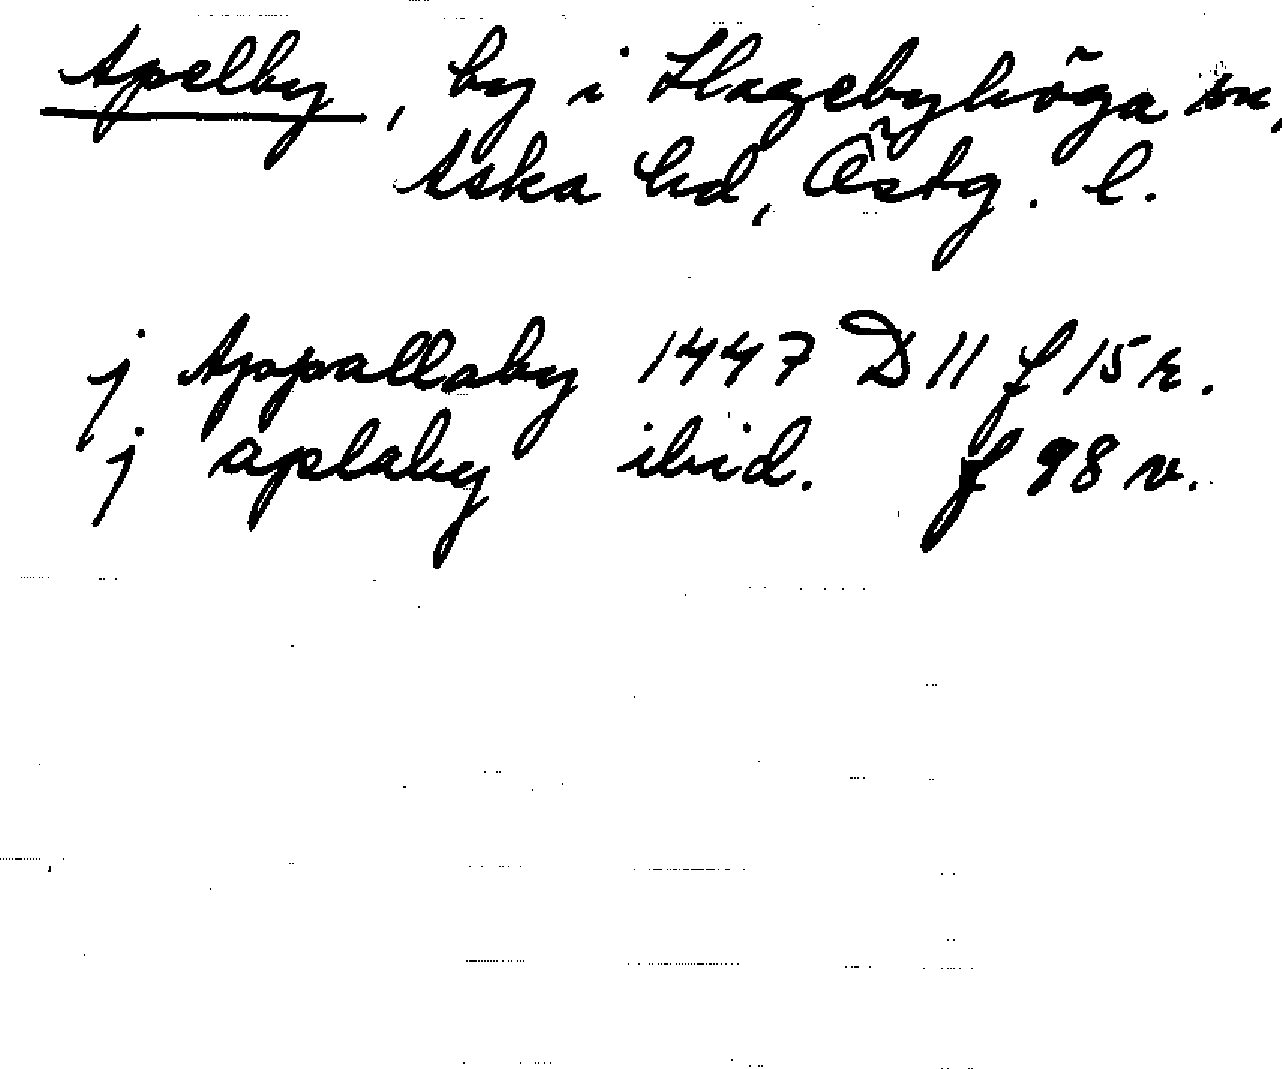 Apelby, by i Hagebyhöga sn,
Aska hd, Östg. l.
j Appallaby 1447 D 11 f 15 r.
j aplaby ibid. f 98 v.